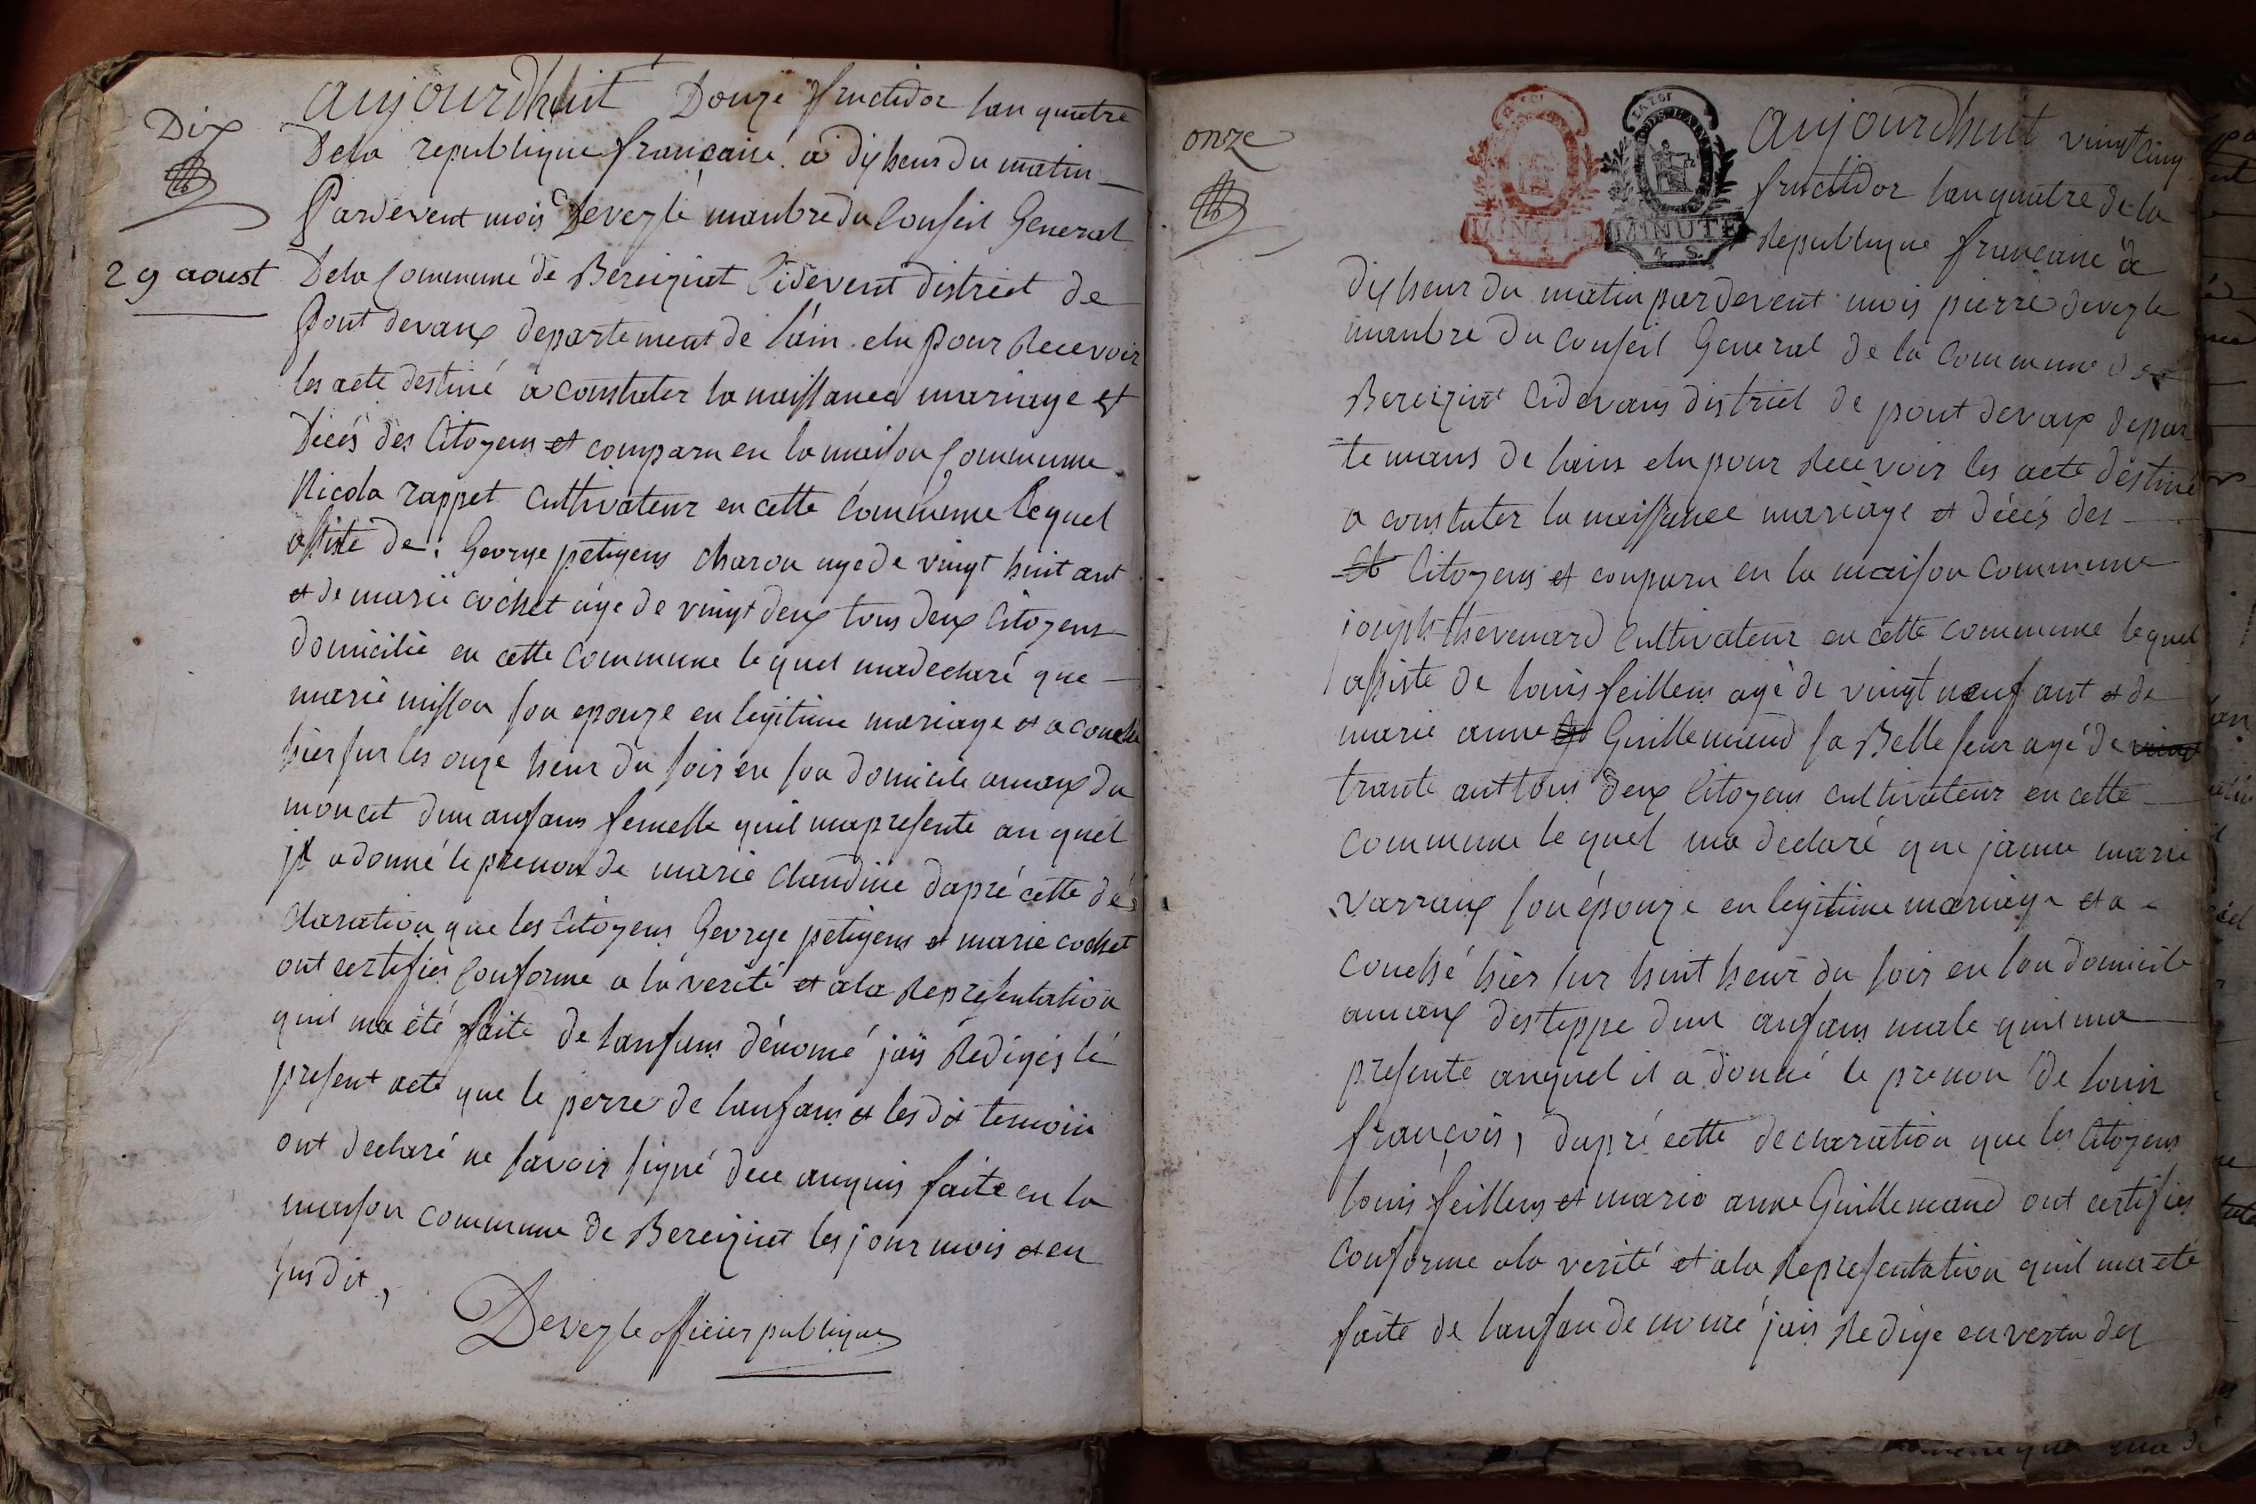 Dix
29 aoust
aujourdhuit Douze fructidor lan quatre
Dela republique francaise a dix heur du matin
Pardevent mois Devezle manbre du Conseil General
Dela Commune de Bereiziat Cidevent district de
Pont devaux departement de lain elu pour Recevoir
les acte destiné a constater la naissance mariage et
Décés des Citoyens et comparu en la maison Commune
Nicola rappet cultivateur en cette commune lequel
assiste de George petigens charon age de vingt huit ant
et de marie cochet age de vingt deux tous deux Citoyens
domicilié en cette commune lequel madeclaré que
marie nisson son epouze en legitime mariage et acouché
hier sur les onze heur du soir en son domicile amaux du
moncet dun anfans femelle quil mapresente auquel
jl adonné le prenon de marie claudine daprés cette dé
claration que les Citoyens George petigens et marie cochet
ont certifiés conforme a la verité et ala Representation
quil ma été faite de lanfans dénomé jais Redigés lé
present acte que le perre de lanfans et les dit temoin
ont declaré ne savoir signé dece anquis faite en la
maison commune de Bereiziat les jour mois et en
susdit,
Devezle officier publique
onze
LA LOI
MINUTE
LA LOI
MINUTE
4 S.
aujourdhuit vingt cinq
fructidor lan quatre de la
Republique francaise a
dix heur du matin pardevent mois pierre devezle
manbre du conseil General de la commune de
Bereiziat Cidevans district de pont devaux depar
te mans de lain elu pour Recevoir les acte destiné
a constater la naissance mariage et décés des
Citoyens et comparu en la maison commune
joseph thevenard Cultivateur en cette commune lequel
assiste de louis feillens agé de vingt neuf ant et de
marie anne Guillemaud sa Belle seur agé de vingt
trante ant tous deux Citoyens cultivateur en cette
commune le quel ma declaré que janne marie
varraux son épouze en legitime mariage et a
couché hier sur huit heur du soir en son domicile
amaux desteppe dun anfans male quil ma
presente auquel il a donné le prenon de louis
françois, dapré cette declaration que les Citoyens
louis feillens et marie anne Guillemaud ont certifies
conforme ala verité et ala Representation quil ma été
faite de lanfan denomé jais Redige en vertu des